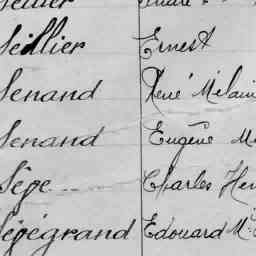 Seillier Ernest
Senand René Mélain
Senand Eugène M
Sége Charles Hen
Ségégrand Edouard M